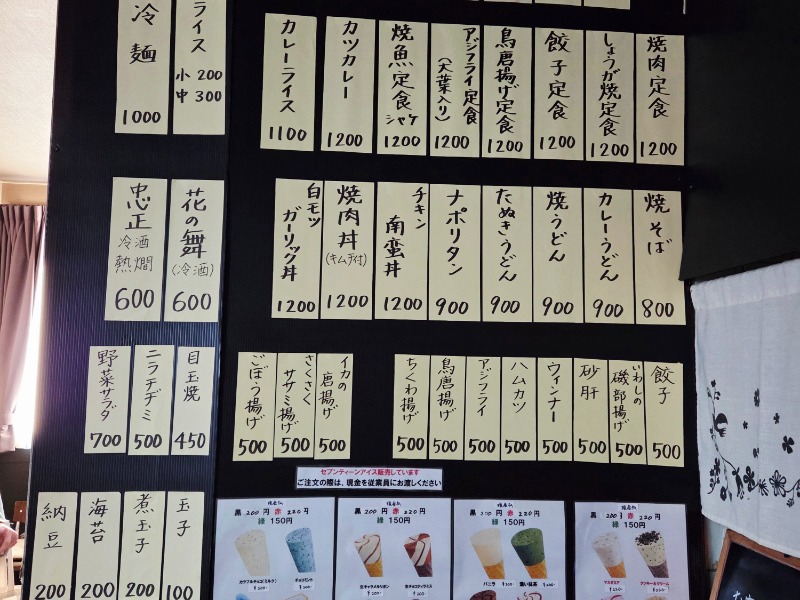 焼肉定食 1200
しょうが焼定食 1200
餃子定食 1200
鳥唐揚げ定食 1200
アジフライ定食 (大葉入り) 1200
焼魚定食 シャケ 1200
カツカレー 1200
カレーライス 1100
ライス
小 200
中 300
冷麺 1000
焼そば 800
カレーうどん 900
焼うどん 900
たぬきうどん 900
ナポリタン 900
チキン南蛮丼 1200
焼肉丼 (キムチ付) 1200
白モツガーリック丼 1200
花の舞 (冷酒) 600
忠正 冷酒 熱燗 600
餃子 500
いわしの磯部揚げ 500
砂肝 500
ウィンナー 500
ハムカツ 500
アジフライ 500
鳥唐揚げ 500
ちくわ揚げ 500
イカの唐揚げ 500
さくさくササミ揚げ 500
ごぼう揚げ 500
目玉焼 450
ニラチヂミ 500
野菜サラダ 700
玉子 100
煮玉子 200
海苔 200
納豆 200
セブンティーンアイス販売しています
ご注文の際は、現金を従業員にお渡しください
黒 200円 赤 220円
緑 150円
黒 200円 赤 220円
緑 150円
黒 200円 赤 220円
緑 150円
黒 200円 赤 220円
緑 150円